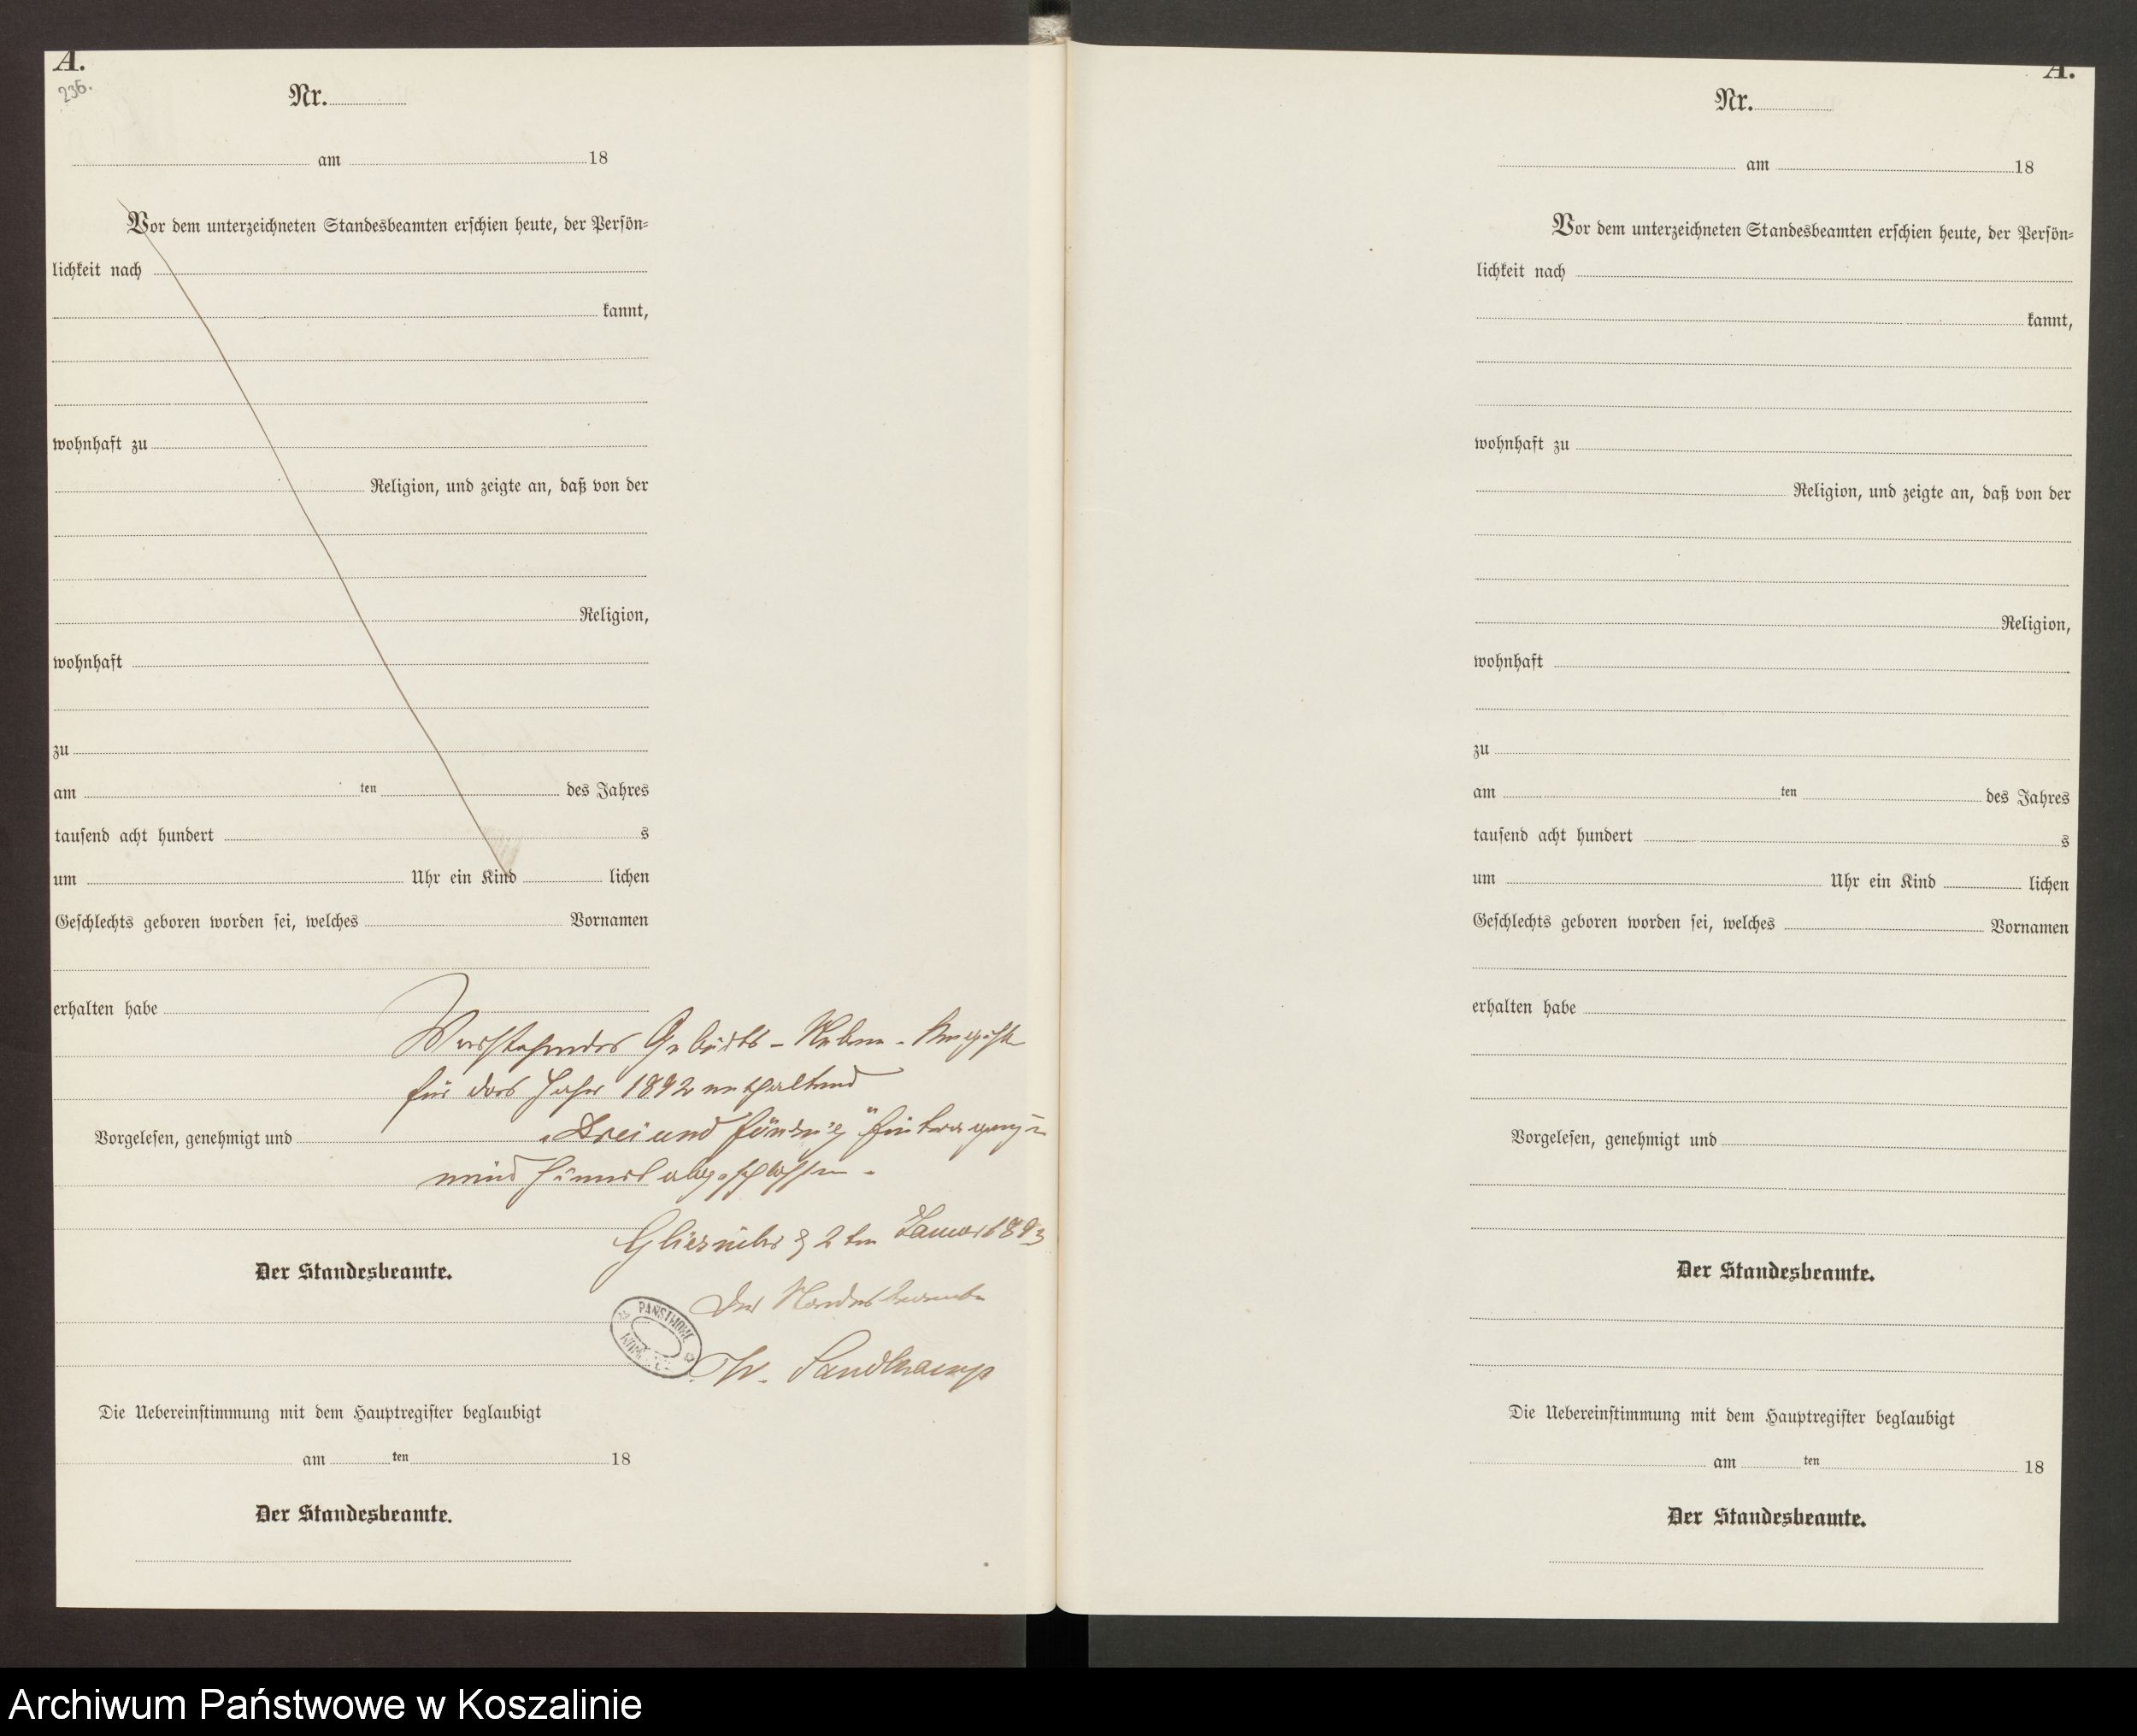 A.
236.
Nr.
am 18
Vor dem unterzeichneten Standesbeamten erschien heute, der Persön-
lichkeit nach
kannt,
wohnhaft zu
Religion, und zeigte an, daß von der
Religion,
wohnhaft
zu
am ten des Jahres
tausend acht hundert s
um Uhr ein Kind lichen
Geschlechts geboren worden sei, welches Vornamen
erhalten habe
Vorstehendes Geburts-Neben-Register
für das Jahr 1892 enthaltend
Vorgelesen, genehmigt und
"Drei und fünfzig" Eintragungen
wird hiermit abgeschlossen.
2ten Januar 1893
Der Standesbeamte.
Der Standesbeamte
PAŃSTWOWE
Sandkamp
Die Uebereinstimmung mit dem Hauptregister beglaubigt
am ten 18
Der Standesbeamte.
A.
Nr.
am 18
Vor dem unterzeichneten Standesbeamten erschien heute, der Persön-
lichkeit nach
kannt,
wohnhaft zu
Religion, und zeigte an, daß von der
Religion,
wohnhaft
zu
am ten des Jahres
tausend acht hundert s
um Uhr ein Kind lichen
Geschlechts geboren worden sei, welches Vornamen
erhalten habe
Vorgelesen, genehmigt und
Der Standesbeamte.
Die Uebereinstimmung mit dem Hauptregister beglaubigt
am ten 18
Der Standesbeamte.
Archiwum Państwowe w Koszalinie